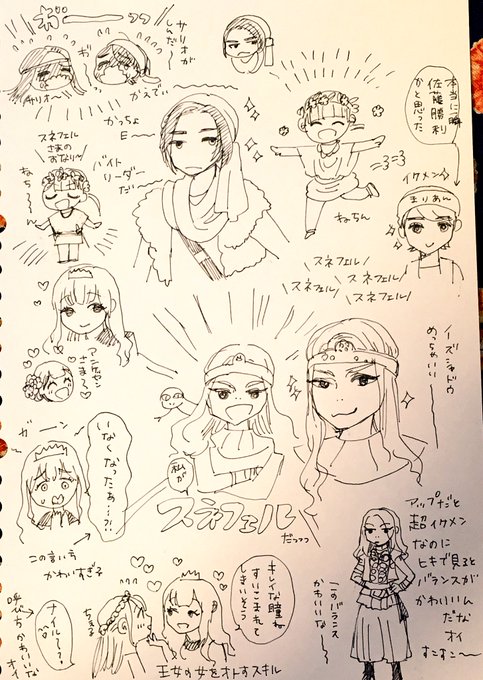 おーーっっ
サリオが
しんだ〜
ぎ
サリオ〜
かえでぃ
かっちょ
E〜〜
スネフェル
さまの
おなり〜
ねち〜ん
バイト
リーダー
だ
ねちん
本当に一瞬
佐藤勝利
かと思った
イケメン
まりあん
スネフェル
スネフェル
スネフェル
スネフェル
イーズシャドウ
めっちゃいい
アンケセン
さまぁ
ガーン
いなくなったぁ…?!
この言い方
かわいすぎ子
私が
スネフェル
だっっっ
このバランス
かわいい
アップだと
超イケメン
なのに
ヒキで見ると
バランスが
かわいいん
だな
オイ
すこすこ〜
キレイな瞳ね
すいこまれて
しまいそう
王女の女をオトすスキル
ナイル〜?
呼び方かわいいな
オイ